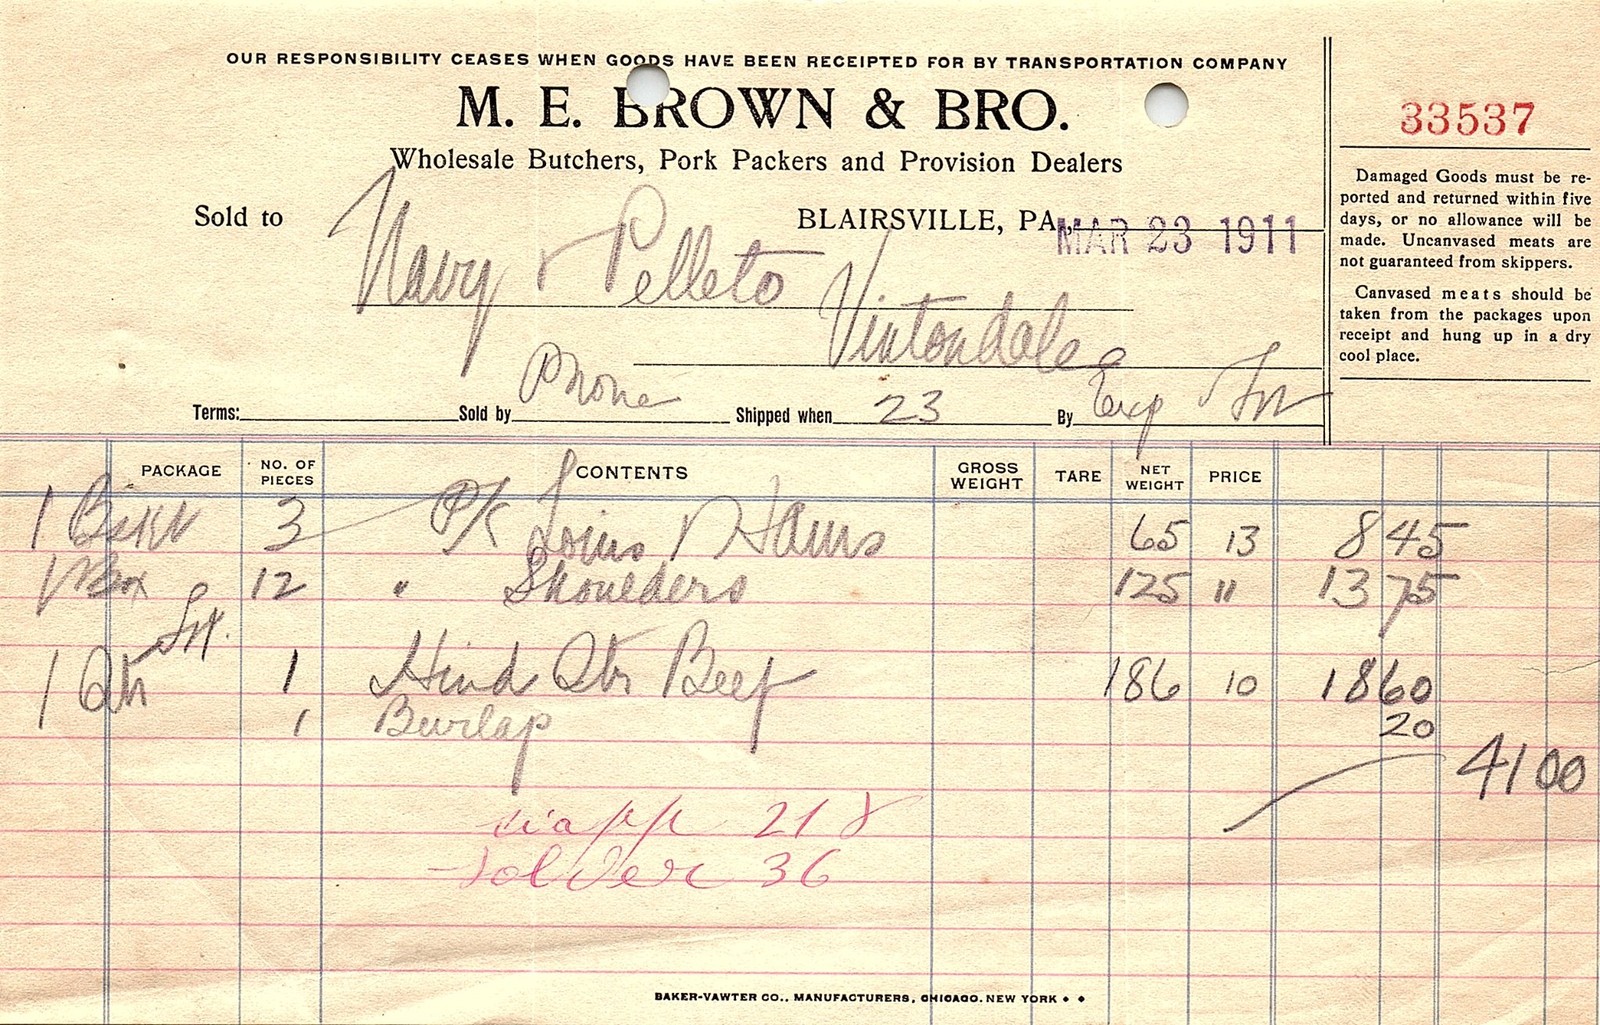 OUR RESPONSIBILITY CEASES WHEN GOODS HAVE BEEN RECEIPTED FOR BY TRANSPORTATION COMPANY
M. E. BROWN & BRO.
Wholesale Butchers, Pork Packers and Provision Dealers
33537
Damaged Goods must be re-
ported and returned within five
days, or no allowance will be
made. Uncanvased meats are
not guaranteed from skippers.
Canvased meats should be
taken from the packages upon
receipt and hung up in a dry
cool place.
Sold to BLAIRSVILLE, PA. MAR 23 1911
Navy & Pelleto
Vintondale
Terms: Sold by Phone Shipped when 23 By Exp
PACKAGE NO. OF PIECES CONTENTS GROSS WEIGHT TARE NET WEIGHT PRICE
1 3 P/K Loins & Hams 65 13 8 45
1 Box 12 " Shoulders 125 " 13 75
1 Qtr 1 Hind Qtr Beef 186 10 18 60
1 Burlap 20
41 00
218
36
BAKER-VAWTER CO., MANUFACTURERS, CHICAGO. NEW YORK